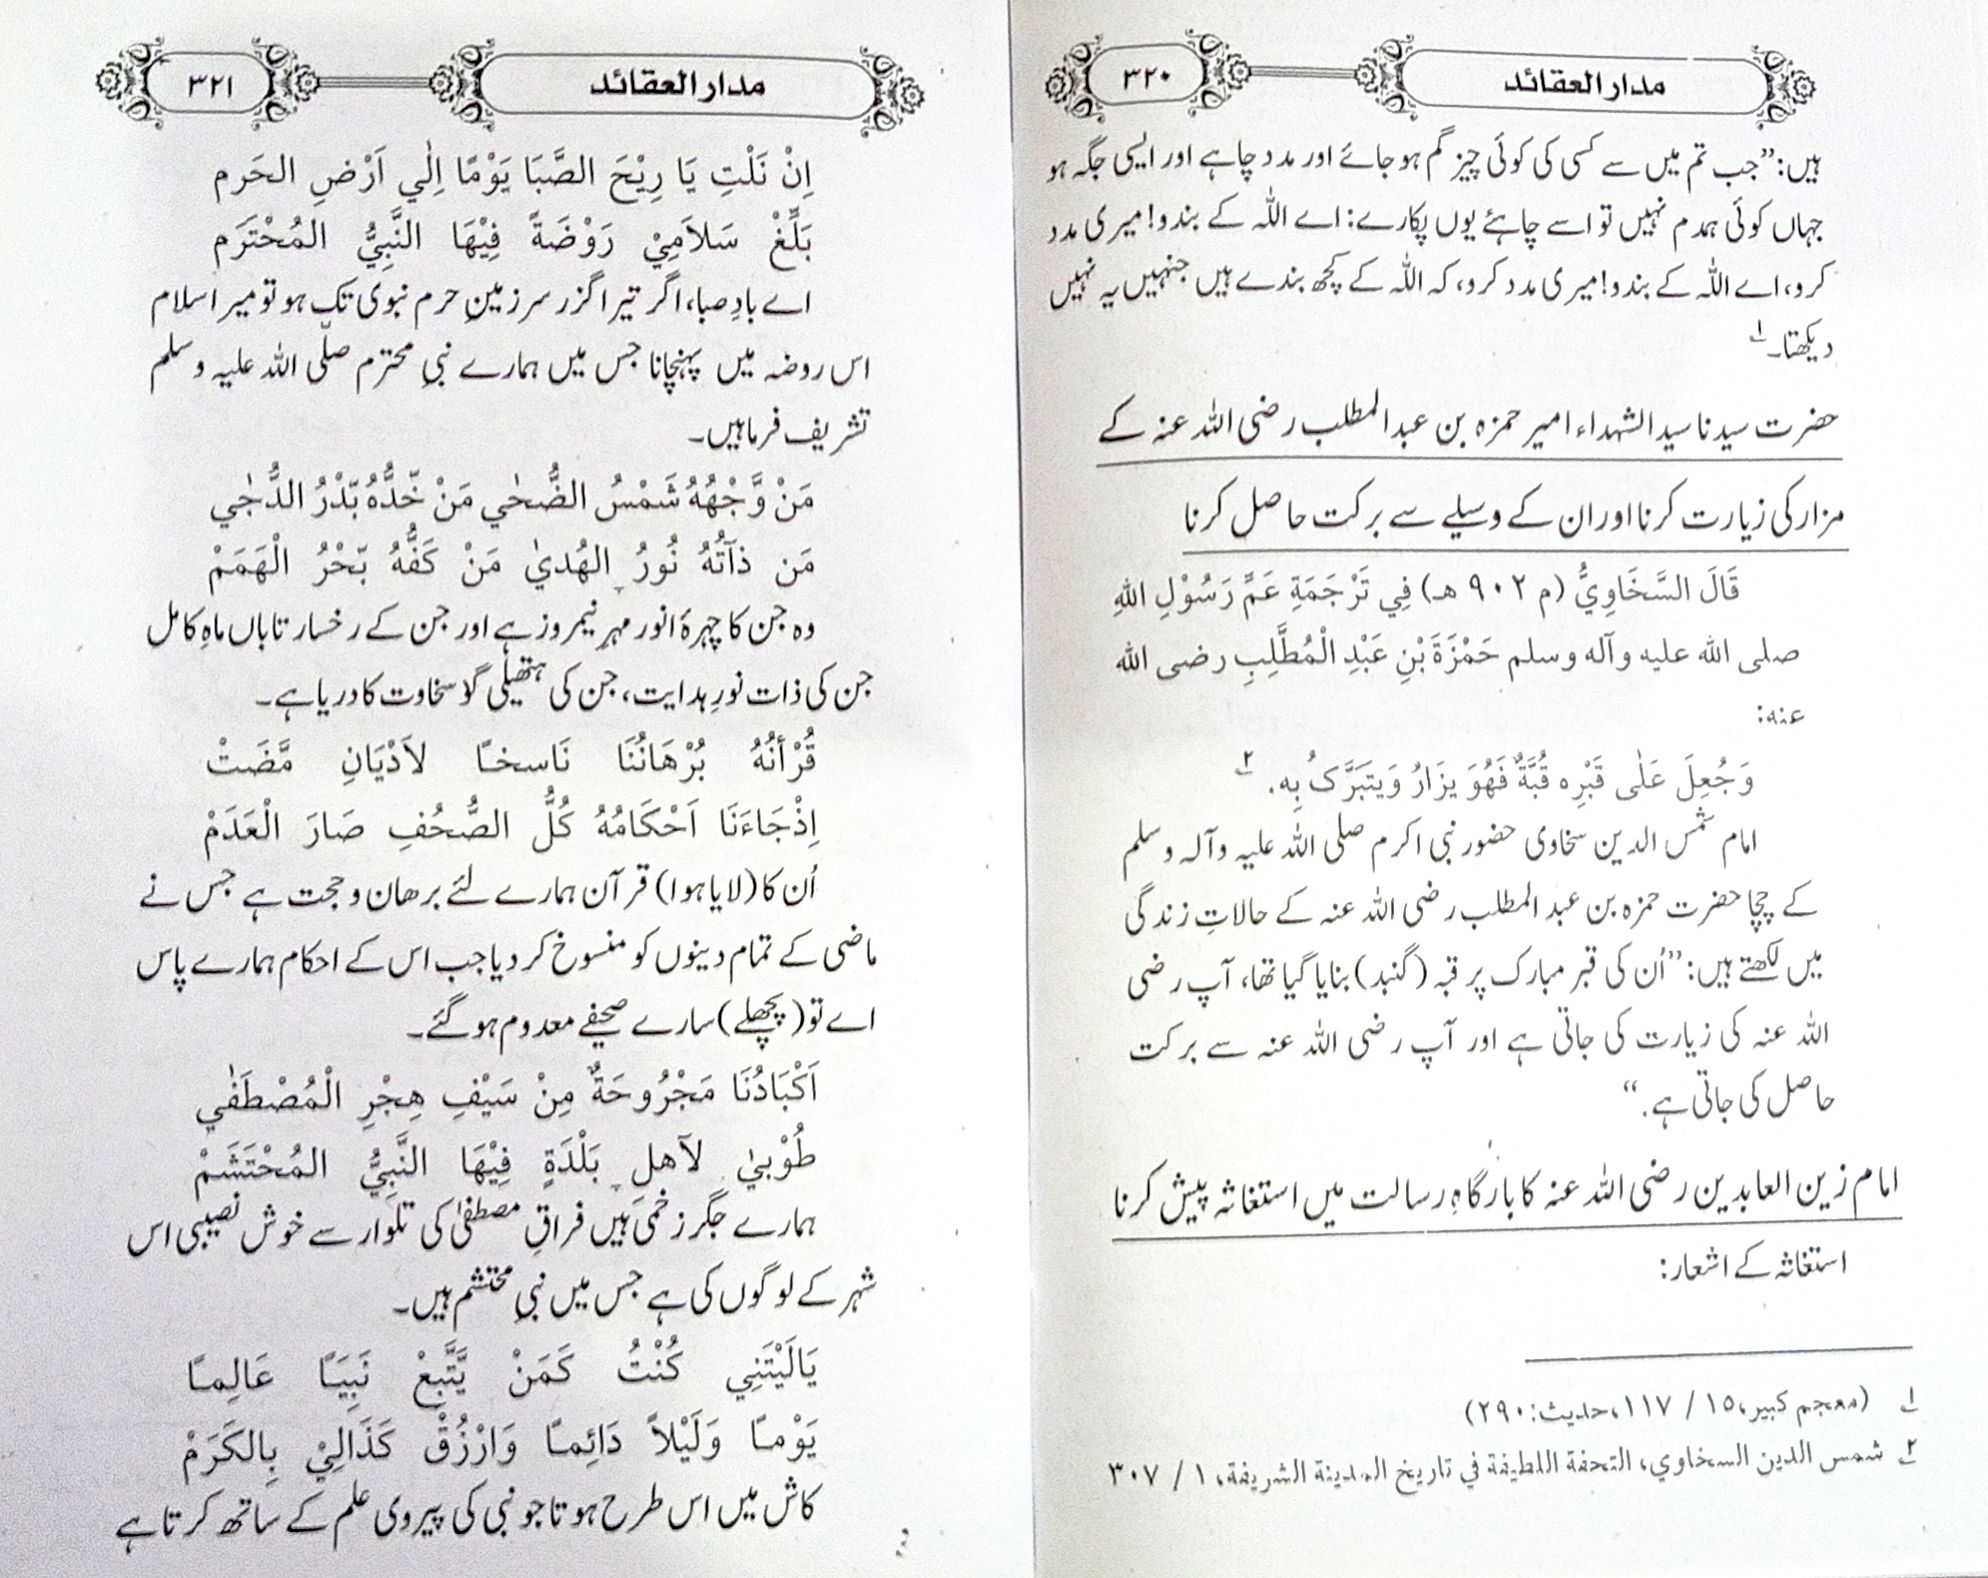 مدار العقائد
۳۲۰
ہیں: ”جب تم میں سے کسی کی کوئی چیز گم ہو جائے اور مدد چاہے اور ایسی جگہ ہو
جہاں کوئی ہمدم نہیں تو اسے چاہئے یوں پکارے: اے اللہ کے بندو! میری مدد
کرو، اے اللہ کے بندو! میری مدد کرو، کہ اللہ کے کچھ بندے ہیں جنہیں یہ نہیں
دیکھتا۔ ۱
حضرت سیدنا سید الشہداء امیر حمزہ بن عبد المطلب رضی اللہ عنہ کے
مزار کی زیارت کرنا اور ان کے وسیلے سے برکت حاصل کرنا
قَالَ السَّخَاوِيُّ (م ۹۰۲ هـ) فِي تَرْجَمَةِ عَمِّ رَسُوْلِ اللهِ
صلى الله عليه وآله وسلم حَمْزَةَ بْنِ عَبْدِ الْمُطَّلِبِ رضى الله
عنه:
وَجُعِلَ عَلٰى قَبْرِه قُبَّةٌ فَهُوَ يزَارُ وَيتَبَرَّکُ بِه. ۲
امام شمس الدین سخاوی حضور نبی اکرم صلی اللہ علیہ وآلہ وسلم
کے چچا حضرت حمزہ بن عبد المطلب رضی اللہ عنہ کے حالاتِ زندگی
میں لکھتے ہیں: ”اُن کی قبر مبارک پر قبہ (گنبد) بنایا گیا تھا، آپ رضی
اللہ عنہ کی زیارت کی جاتی ہے اور آپ رضی اللہ عنہ سے برکت
حاصل کی جاتی ہے.“
امام زین العابدین رضی اللہ عنہ کا بارگاہِ رسالت میں استغاثہ پیش کرنا
استغاثہ کے اشعار:
۱ (معجم کبیر، ۱۵ / ۱۱۷، حدیث: ۲۹۰)
۲ شمس الدین السخاوي، التحفة اللطيفة في تاريخ المدينة الشريفة، ۱ / ۳۰۷
مدار العقائد
۳۲۱
اِنْ نَلْتِ يَا رِيْحَ الصَّبَا يَوْمًا اِلٰي اَرْضِ الحَرم
بَلِّغْ سَلاَمِيْ رَوْضَةً فِيْهَا النَّبِيُّ المُحْتَرَم
اے بادِ صبا، اگر تیرا گزر سرزمینِ حرم نبوی تک ہو تو میرا سلام
اس روضہ میں پہنچانا جس میں ہمارے نبیِ محترم صلّی اللہ علیہ و سلم
تشریف فرما ہیں۔
مَنْ وَّجْهُهُ شَمْسُ الضُّحٰي مَنْ خّدُّهُ بّدْرُ الدُّجٰي
مَن ذآتُهُ نُورُ الهُديٰ مَنْ كَفُّهُ بّحْرُ الْهَمَمْ
وہ جن کا چہرۂ انور مہرِ نیمروز ہے اور جن کے رخسار تاباں ماہِ کامل
جن کی ذات نورِ ہدایت، جن کی ہتھیلی گوْ سخاوت کا دریا ہے۔
قُرْأنُهُ بُرْهَانُنَا نَاسخـًا لاَدْيَانِ مَّضَتْ
اِذْجَاءَنَا اَحْكَامُهُ كُلُّ الصُّحُفِ صَارَ الْعَدَمْ
اُن کا (لایا ہوا) قرآن ہمارے لئے برھان و حجت ہے جس نے
ماضی کے تمام دینوں کو منسوخ کر دیا جب اس کے احکام ہمارے پاس
اے تو (پچھلے) سارے صحیفے معدوم ہو گئے۔
اَكْبَادُنَا مَجْرُوحَةٌ مِنْ سَيْفِ هِجْرِ الْمُصْطَفٰي
طُوْبيٰ لآهل بَلْدَةٍ فِيْهَا النَّبِيُّ المُحْتَشَمْ
ہمارے جگر زخمی ہیں فراقِ مصطفیٰ کی تلوار سے خوش نصیبی اس
شہر کے لوگوں کی ہے جس میں نبیِ محتشم ہیں۔
يَالَيْتَنِي كُنْتُ كَمَنْ يَّتَّبِعْ نَبِيَّا عَالِمـًا
يَوْمـًا وَلَيْلاً دَائِمـًا وَارْزُقْ كَذَالِيْ بِالكَرَمْ
کاش میں اس طرح ہوتا جو نبی کی پیروی علم کے ساتھ کرتا ہے